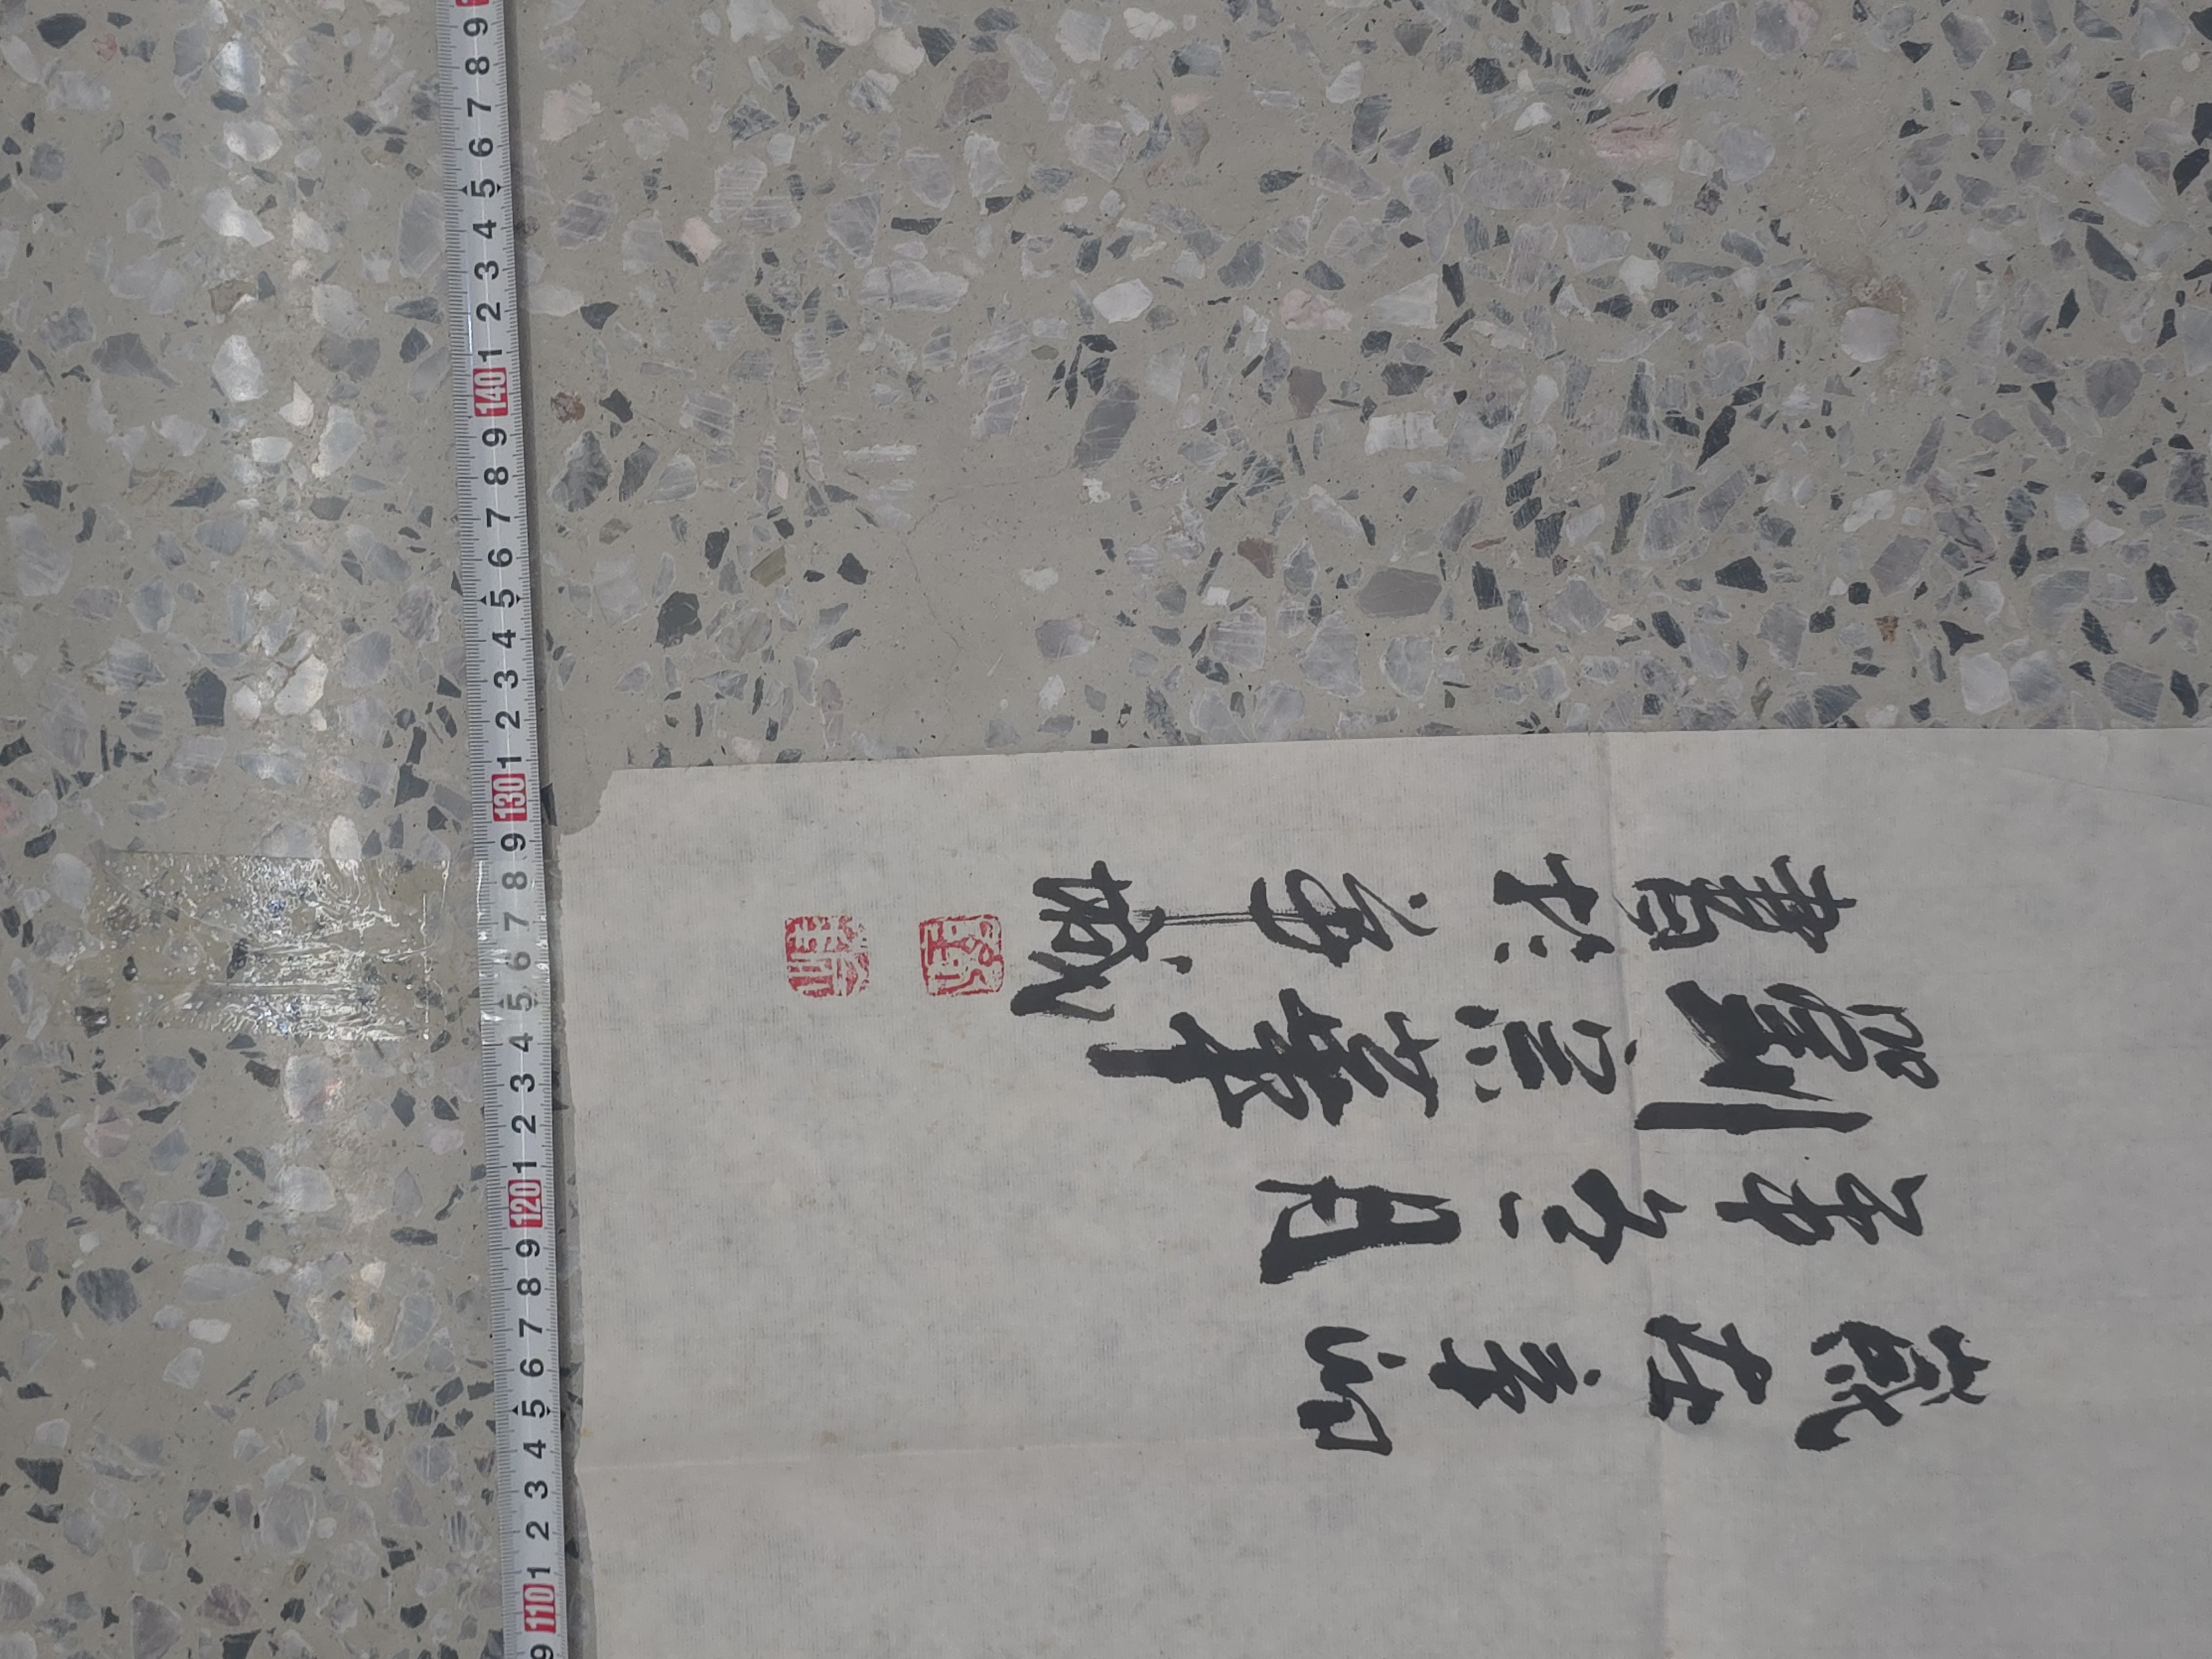 歲在辛卯
年冬月
劉
書於城
9 110 1 2 3 4 5 6 7 8 9 120 1 2 3 4 5 6 7 8 9 130 1 2 3 4 5 6 7 8 9 140 1 2 3 4 5 6 7 8 9